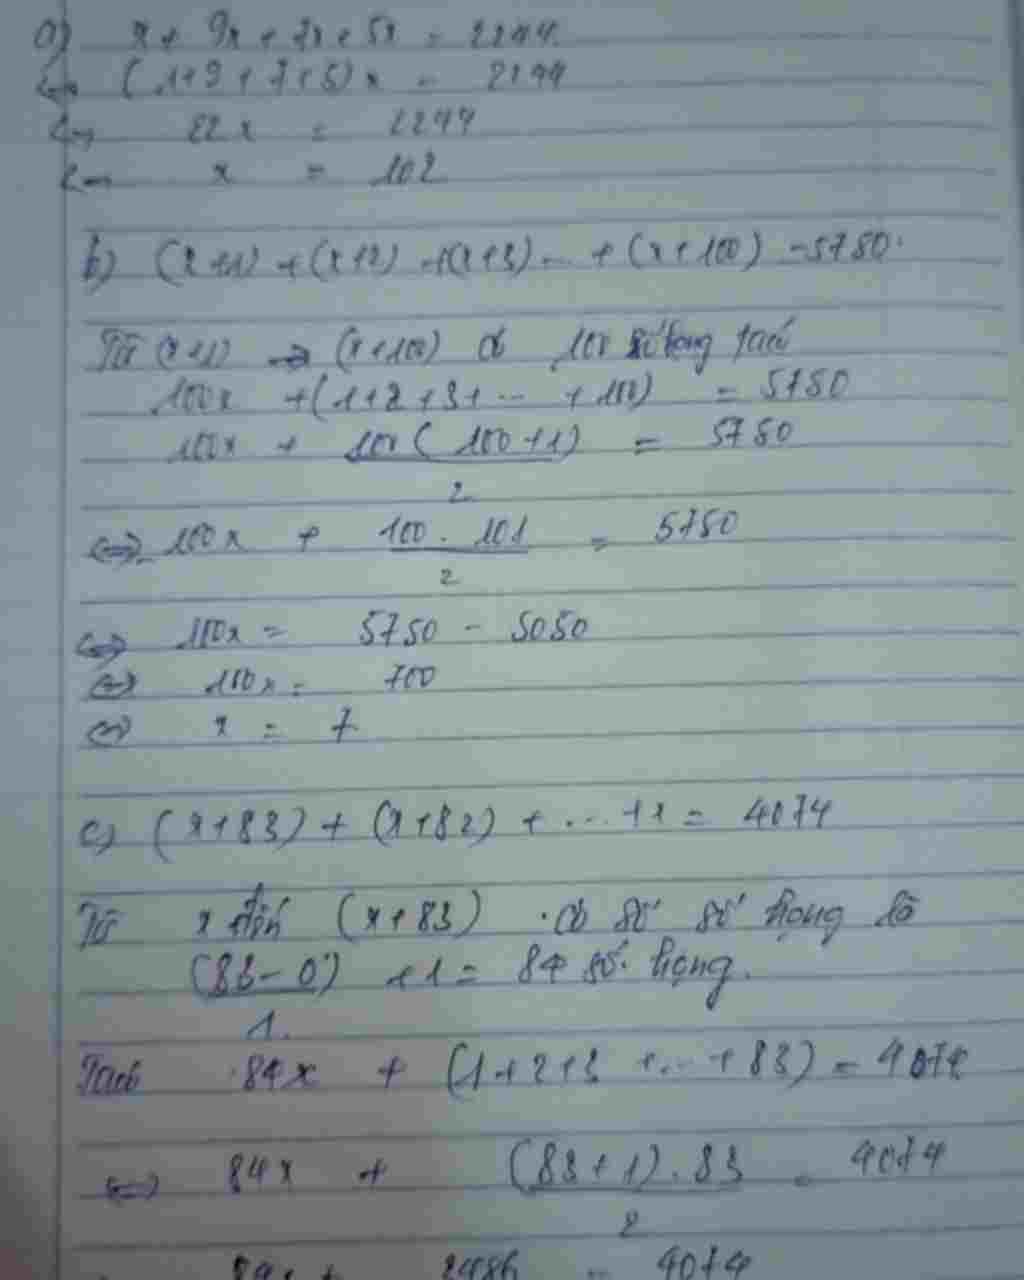 a) x + 9x + 7x + 5x = 2244.
<=> (1+9+7+5)x = 2244
<=> 22x = 2244
<=> x = 102
b) (x+1) + (x+2) + (x+3) ... + (x+100) = 5750.
Từ (x+1) → (x+100) có 100 số hạng ta có
100x + (1+2+3+... + 100) = 5750
100x + 100(100+1) = 5750
2
<=> 100x + 100 . 101 = 5750
2
<=> 100x = 5750 - 5050
<=> 100x = 700
<=> x = 7
c) (x+83) + (x+82) + ... + x = 4074
Từ x đến (x+83) có số số hạng là
(83-0) + 1 = 84 số hạng.
1.
Ta có 84x + (1+2+3 +...+83) = 4074
<=> 84x + (83+1).83 = 4074
2
84x + 3486 = 4074